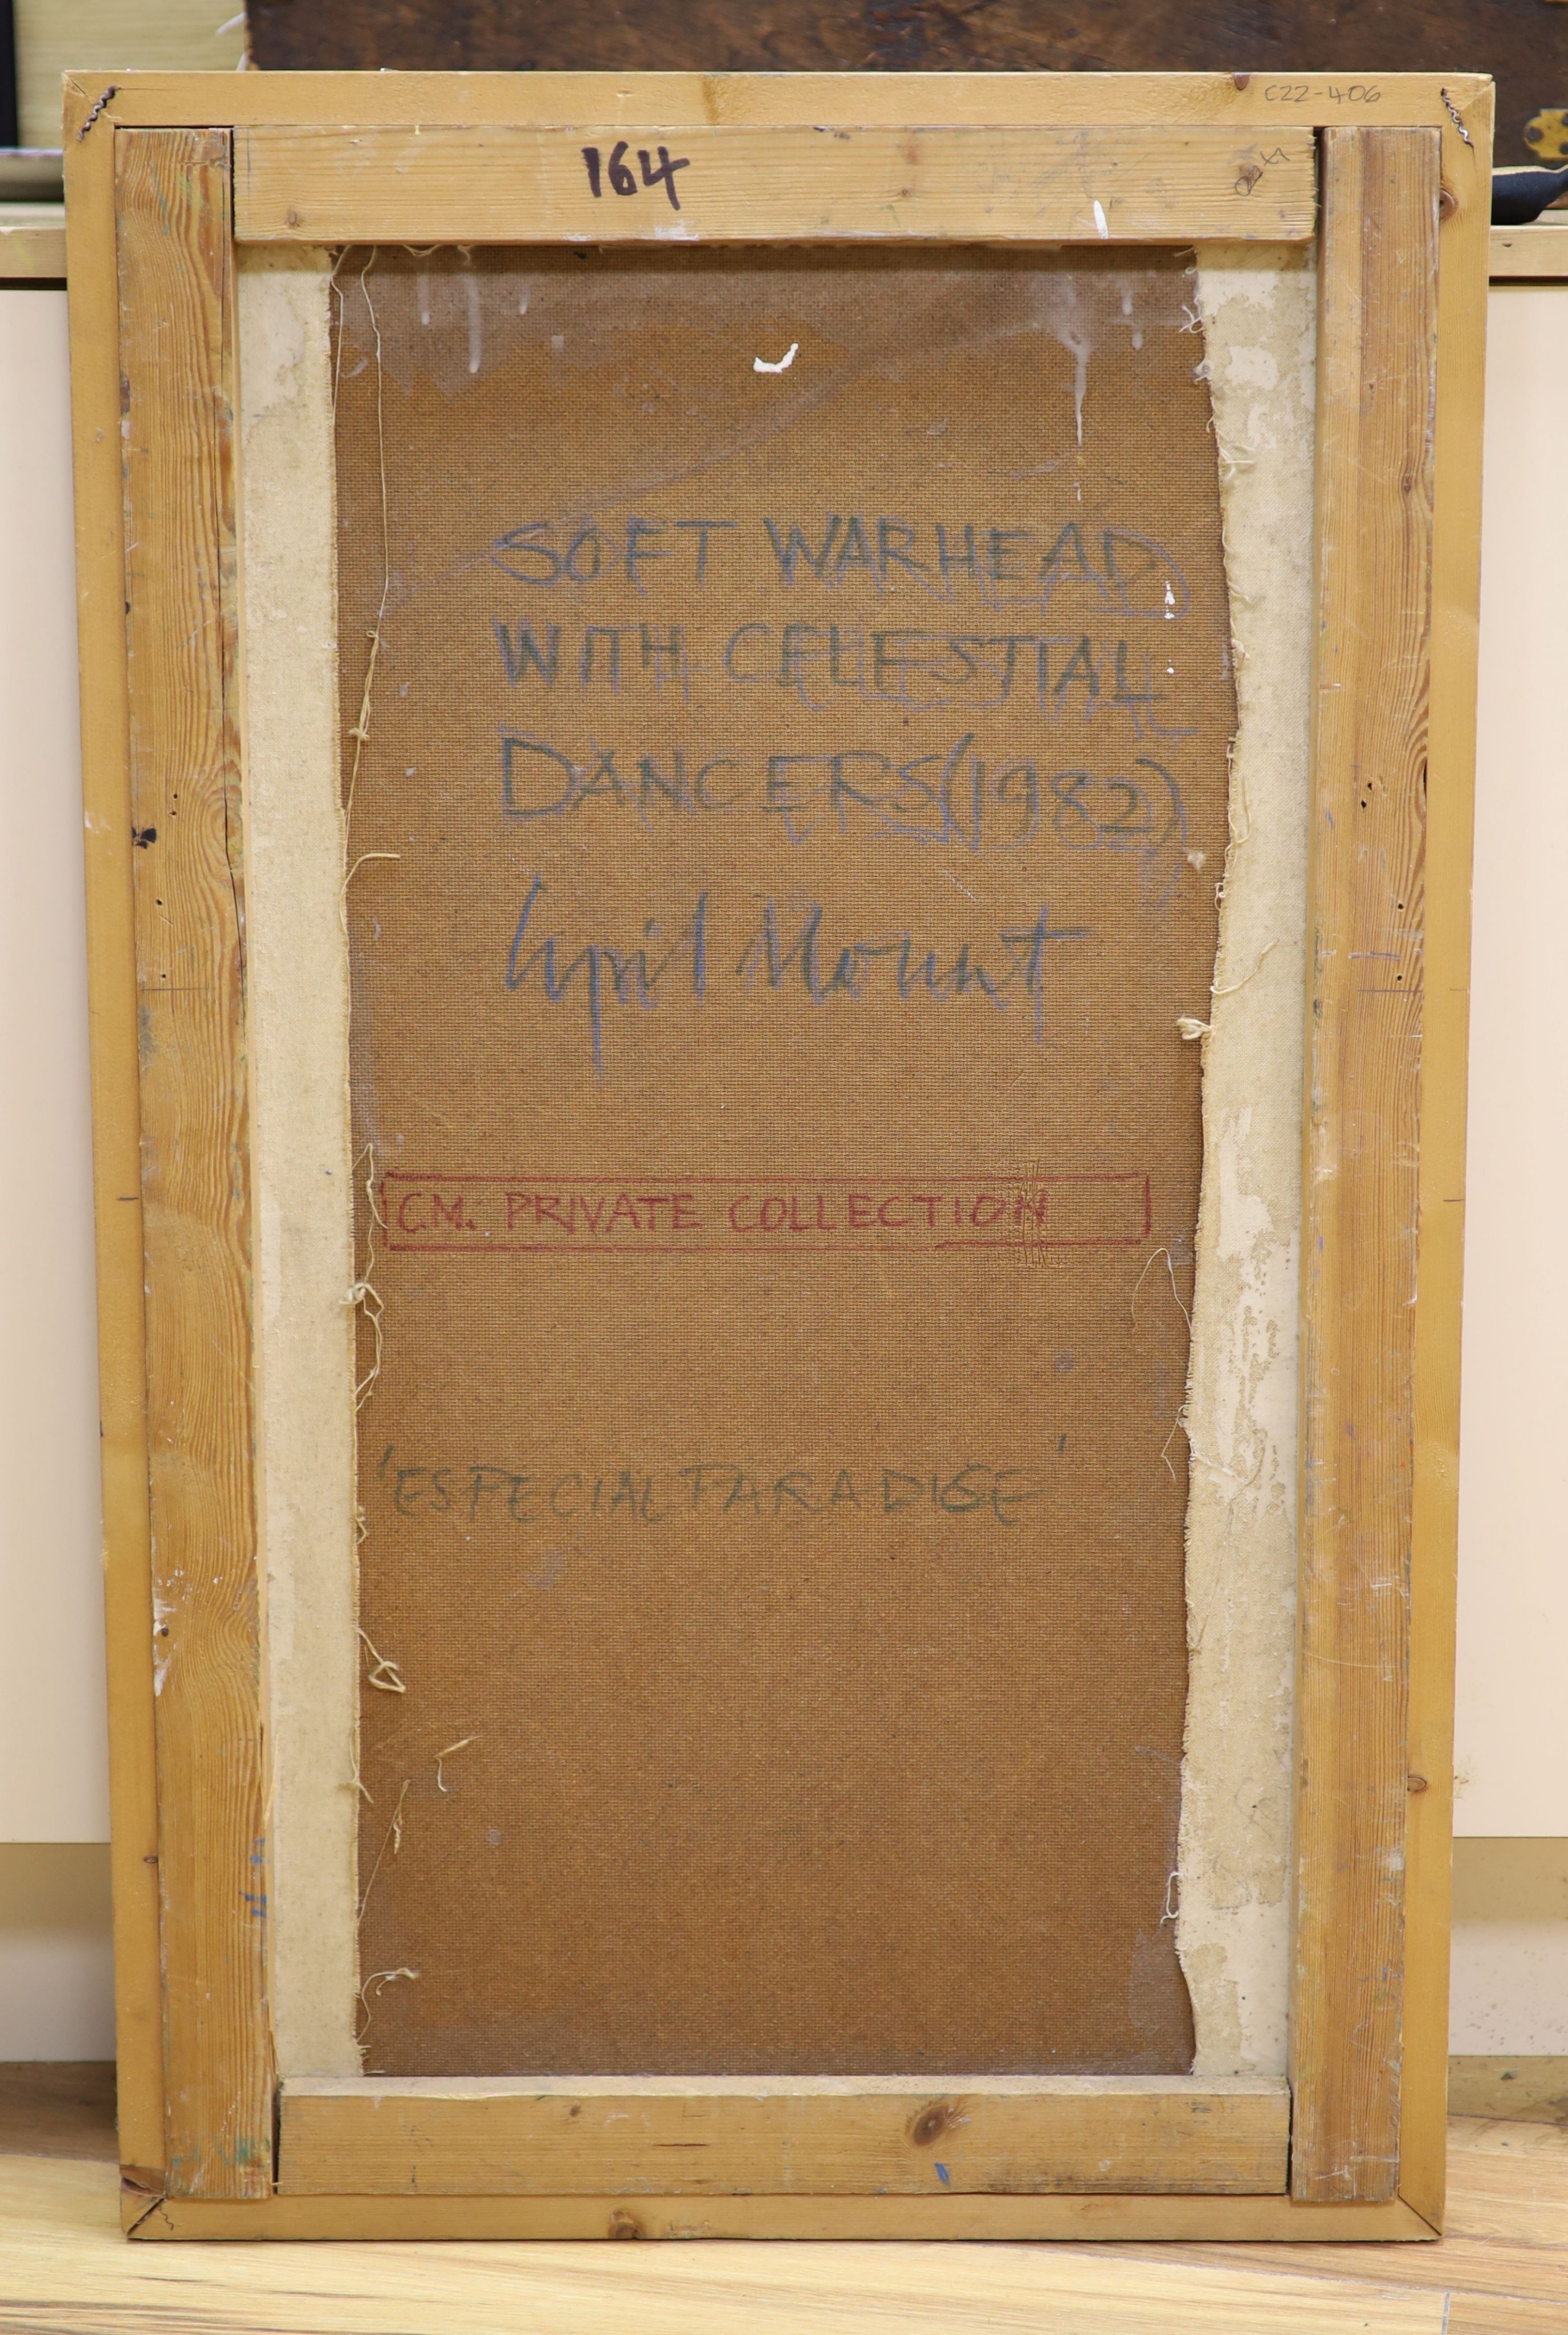 C22-406
164
SOFT WARHEAD
WITH CELESTIAL
DANCERS (1982)
April Mount
C.M. PRIVATE COLLECTION
'ESPECIAL PARADISE'